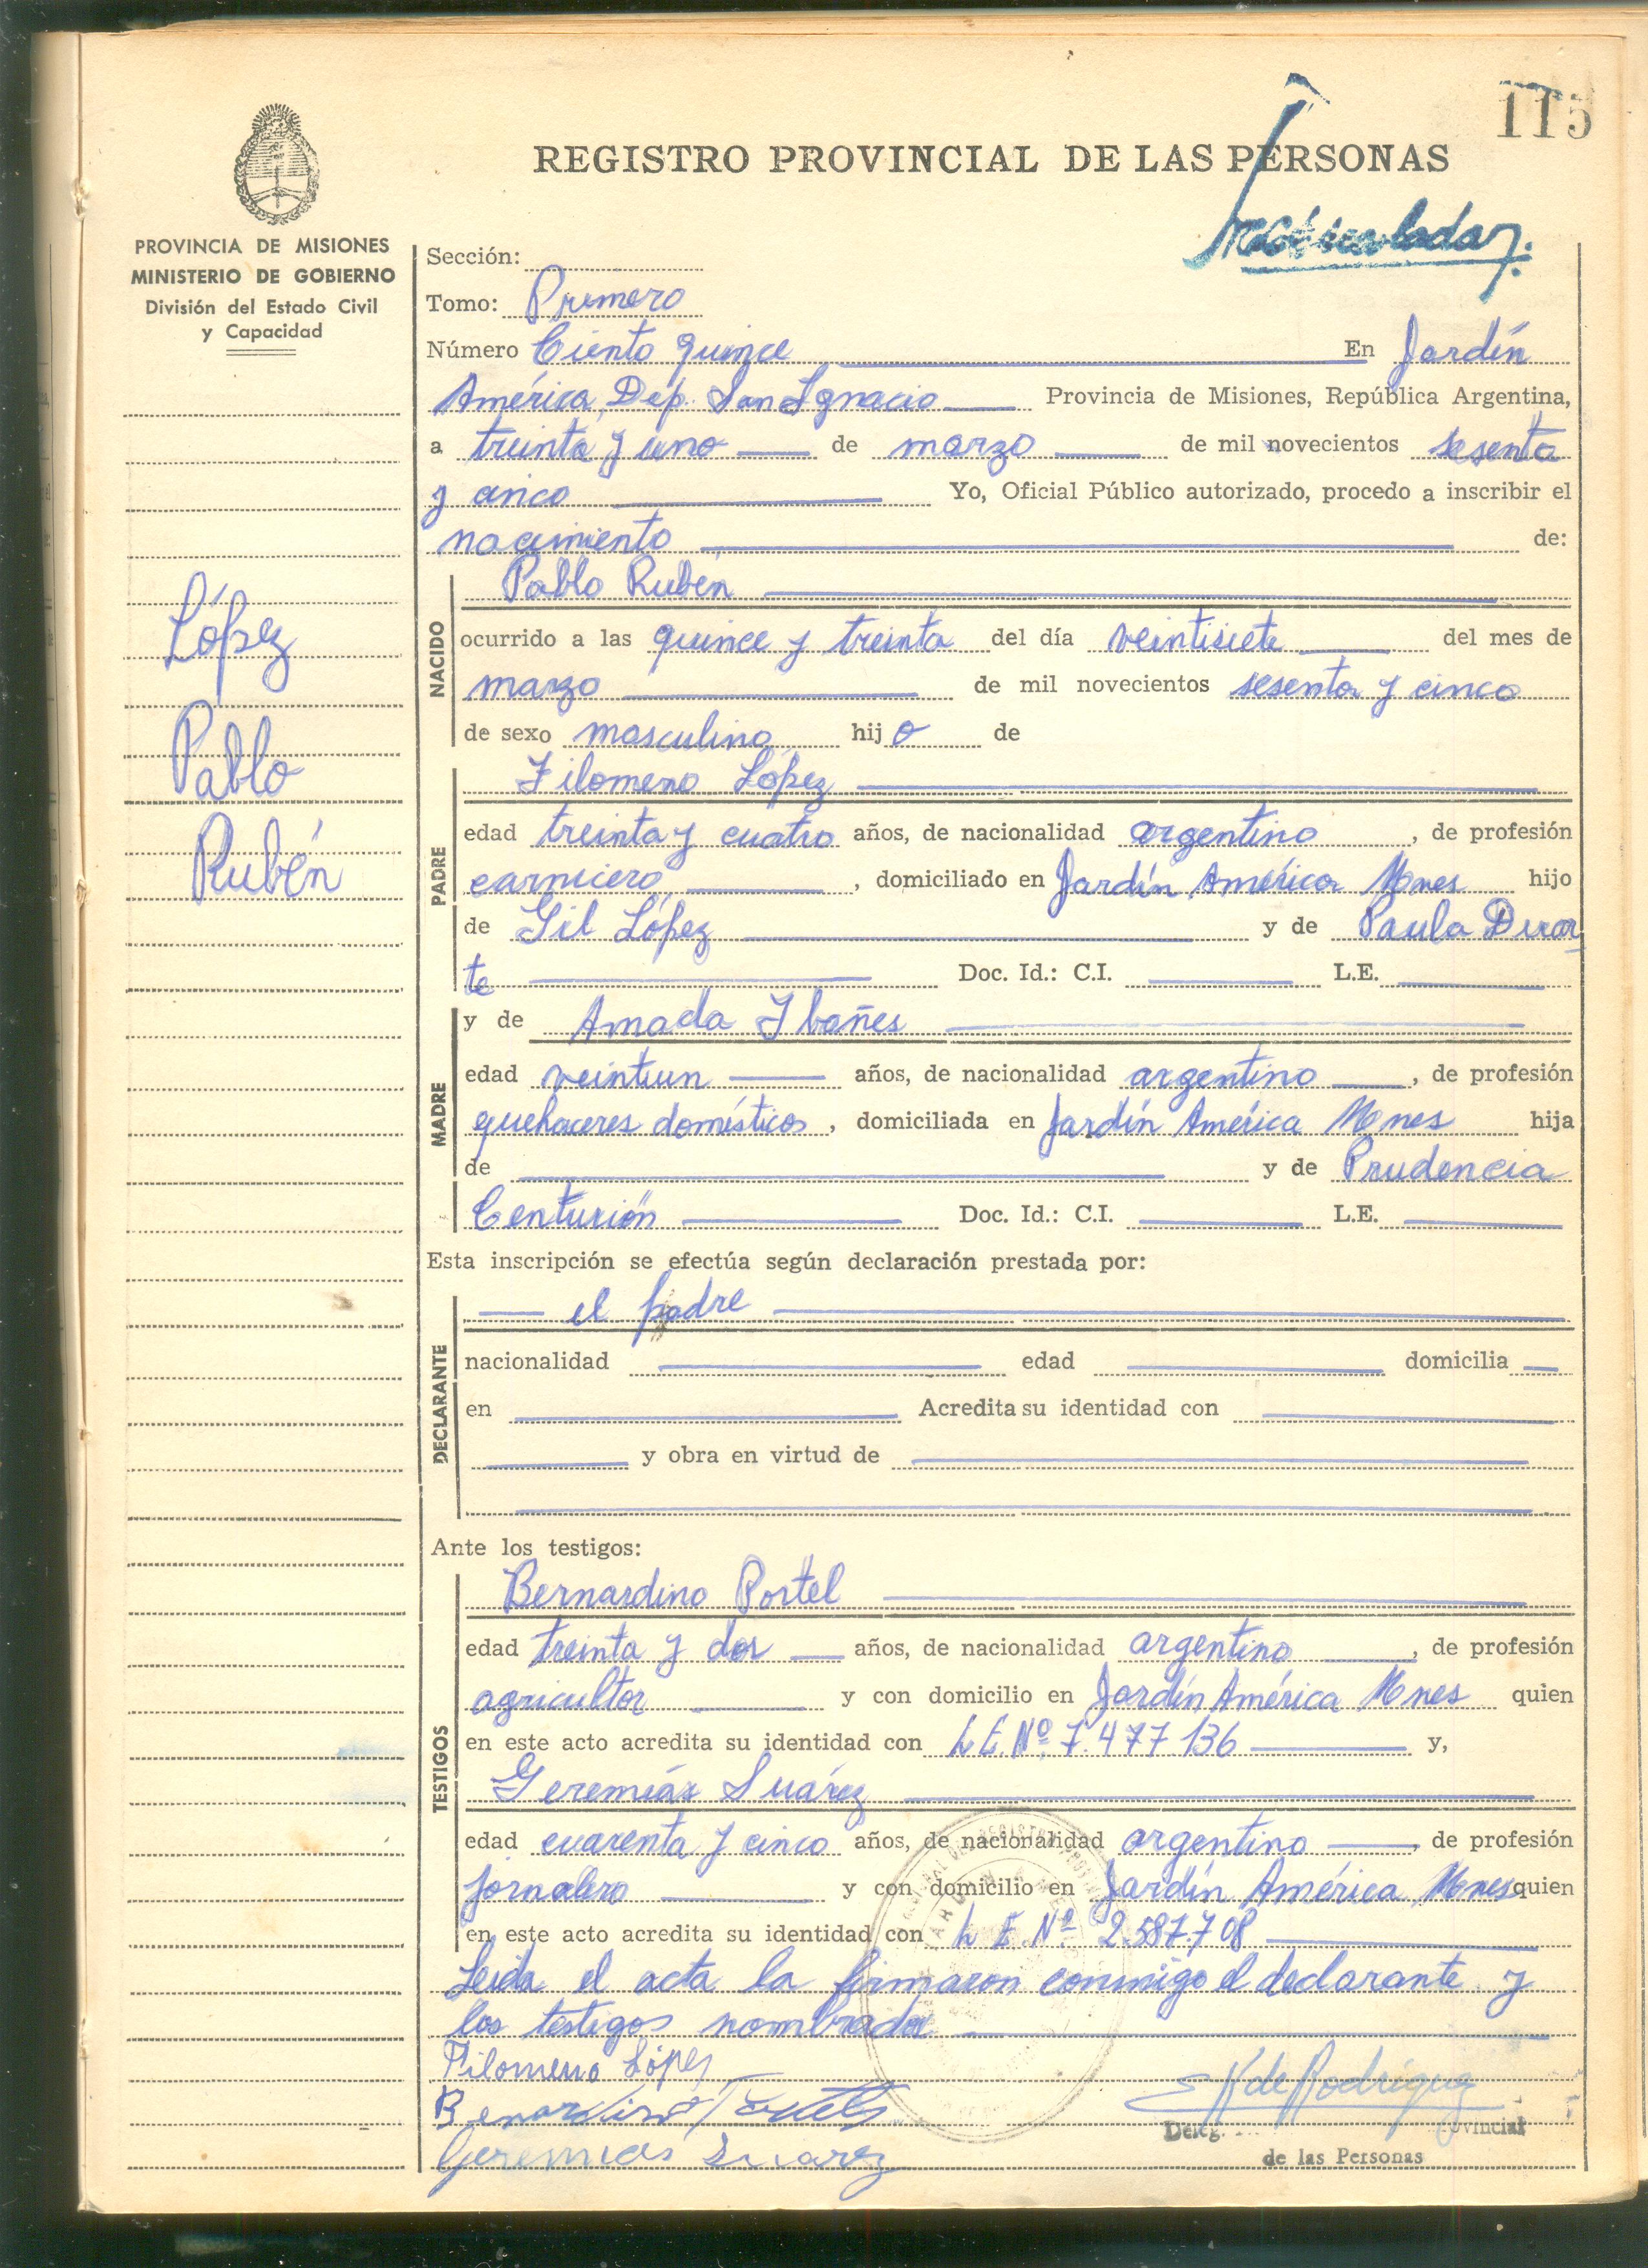 115
REGISTRO PROVINCIAL DE LAS PERSONAS
PROVINCIA DE MISIONES
MINISTERIO DE GOBIERNO
División del Estado Civil
y Capacidad
López
Pablo
Rubén
Sección:
Tomo: Primero
Número Ciento quince En Jardín
América, Dep. San Ignacio Provincia de Misiones, República Argentina,
a treinta y uno de marzo de mil novecientos sesenta
y cinco Yo, Oficial Público autorizado, procedo a inscribir el
nacimiento de:
NACIDO
Pablo Rubén
ocurrido a las quince y treinta del día veintisiete del mes de
marzo de mil novecientos sesenta y cinco
de sexo masculino hijo de
PADRE
Filomeno López
edad treinta y cuatro años, de nacionalidad argentino, de profesión
carnicero, domiciliado en Jardín América Mnes hijo
de Gil López y de Paula Duar
te Doc. Id.: C.I. L.E.
MADRE
y de Amada Ibañes
edad veintiun años, de nacionalidad argentino, de profesión
quehaceres domésticos, domiciliada en Jardín América Mnes hija
de y de Prudencia
Centurión Doc. Id.: C.I. L.E.
Esta inscripción se efectúa según declaración prestada por:
DECLARANTE
el padre
nacionalidad edad domicilia
en Acredita su identidad con
y obra en virtud de
Ante los testigos:
TESTIGOS
Bernardino Portel
edad treinta y dos años, de nacionalidad argentino, de profesión
agricultor y con domicilio en Jardín América Mnes quien
en este acto acredita su identidad con L.E. Nº 7.477.136 y,
Geremías Suárez
edad cuarenta y cinco años, de nacionalidad argentino de profesión
jornalero y con domicilio en Jardín América Mnes quien
en este acto acredita su identidad con L.E. Nº 2.587.708
Leida el acta la firmaron conmigo el declarante y
los testigos nombrados
Filomeno López
Geremias Suarez
de Rodriguez
de las Personas